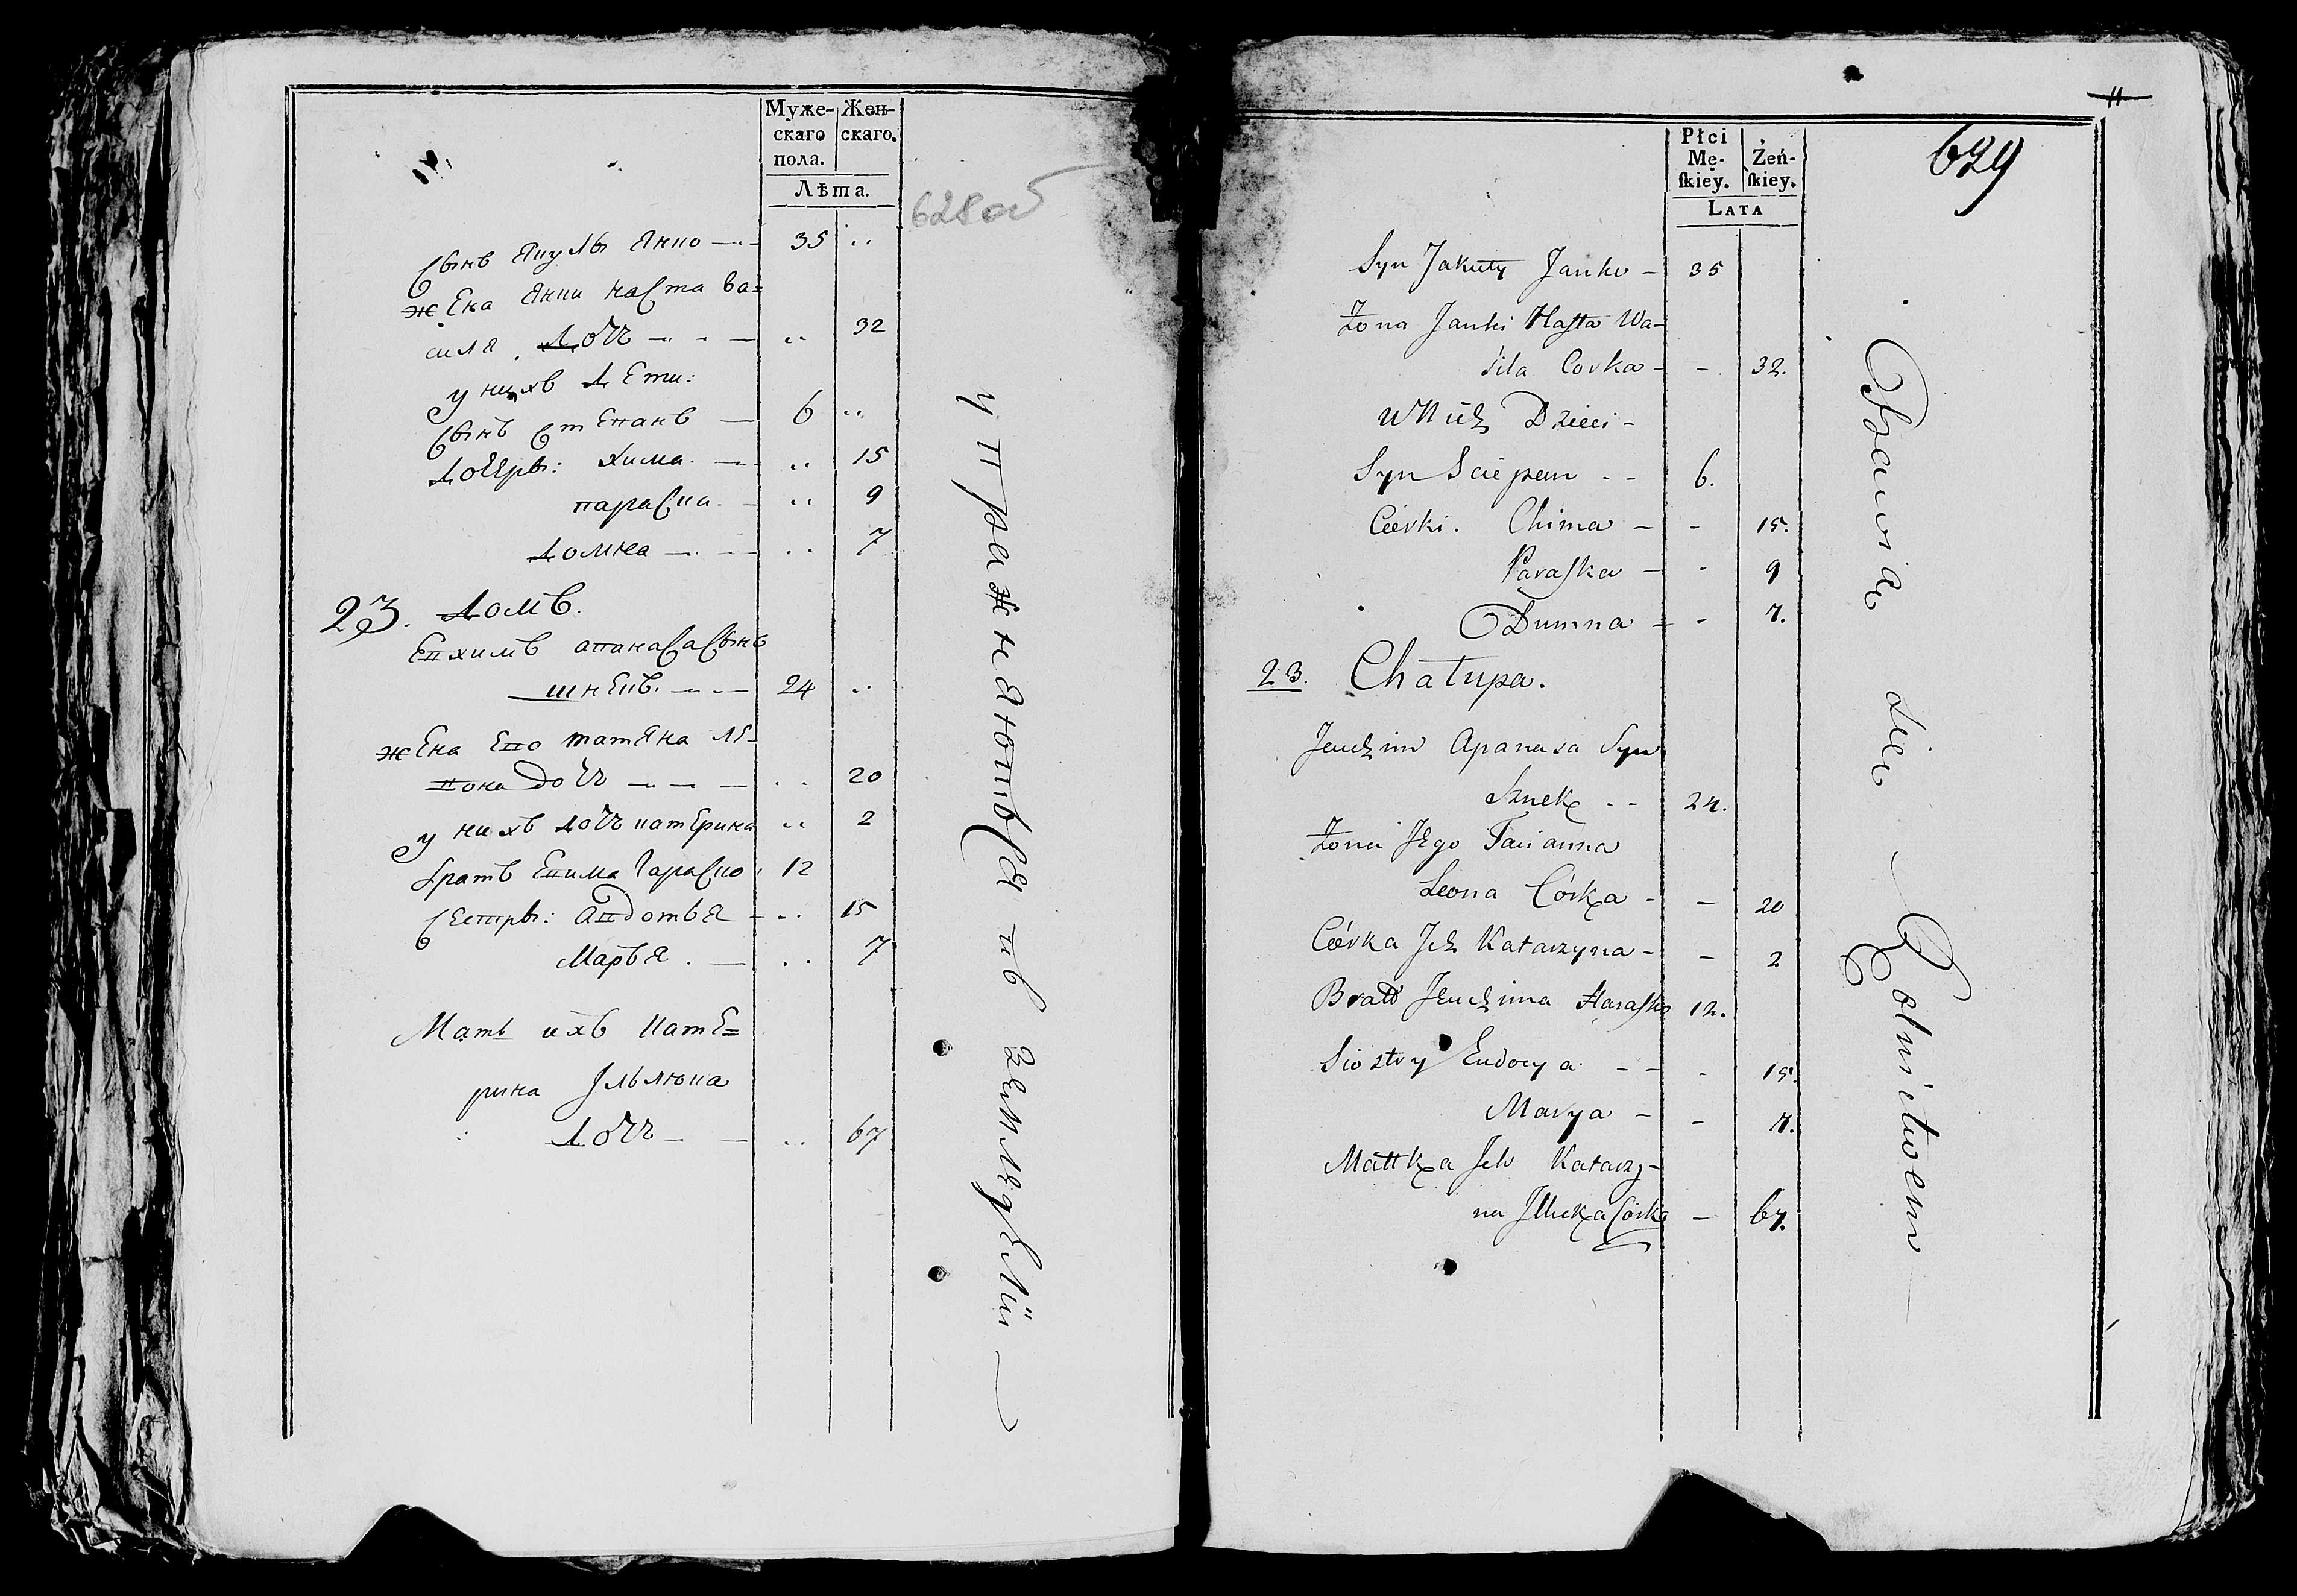 Муже-
скаго
пола.
Жен-
скаго.
Лѣта.
628 об
Сынъ Якуты Янко — 35 ..
жена Янки Наста Ва=
силя дочь — .. 32
у нихъ дети:
Сынъ Степанъ — 6 ..
дочеры: Хима — .. 15
параска — .. 9
домна — .. 7
23. домъ.
Евхимъ апанаса Сынъ
шнекъ. — 24 ..
жена Ево татяна Ле-
вона дочь — .. 20
у нихъ дочь катерина .. 2
братъ Евхима гараско . 12
Сестры: авдотья — .. 15
Марья . — .. 7
Мать ихъ кате=
рина Ильюка
дочь — — .. 67
упражняются въ земледелiи —
Płci
Mę-
skiey.
Żeń-
skiey.
LATA
11
629
Syn Jakuty Janko — 35
Żona Janki Nasta Wa-
síla Corka — - 32.
U Nich Dzieci -
Syn Sciepan - - 6.
Córki. Chima — - 15.
Paraska — - 9
Dumna — - 7.
23. Chałupa.
Jeuchim Apanasa Syn
Sznek - - 24.
Żona Jego Tacianna
Leona Córka - — 20
Córka Ich Katarzyna - — 2
Bratt Jeuchima Harasko 12.
Siostry Eudocya - - - 15.
Marya — - 7.
Mattka Ich Katarzy-
na Illuka Córka — 67.
Bawią się Rolnictwem —